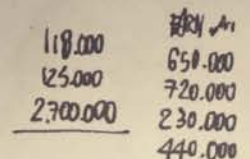 118.000
125.000
2,700.000
650.000
720.000
230.000
440.000